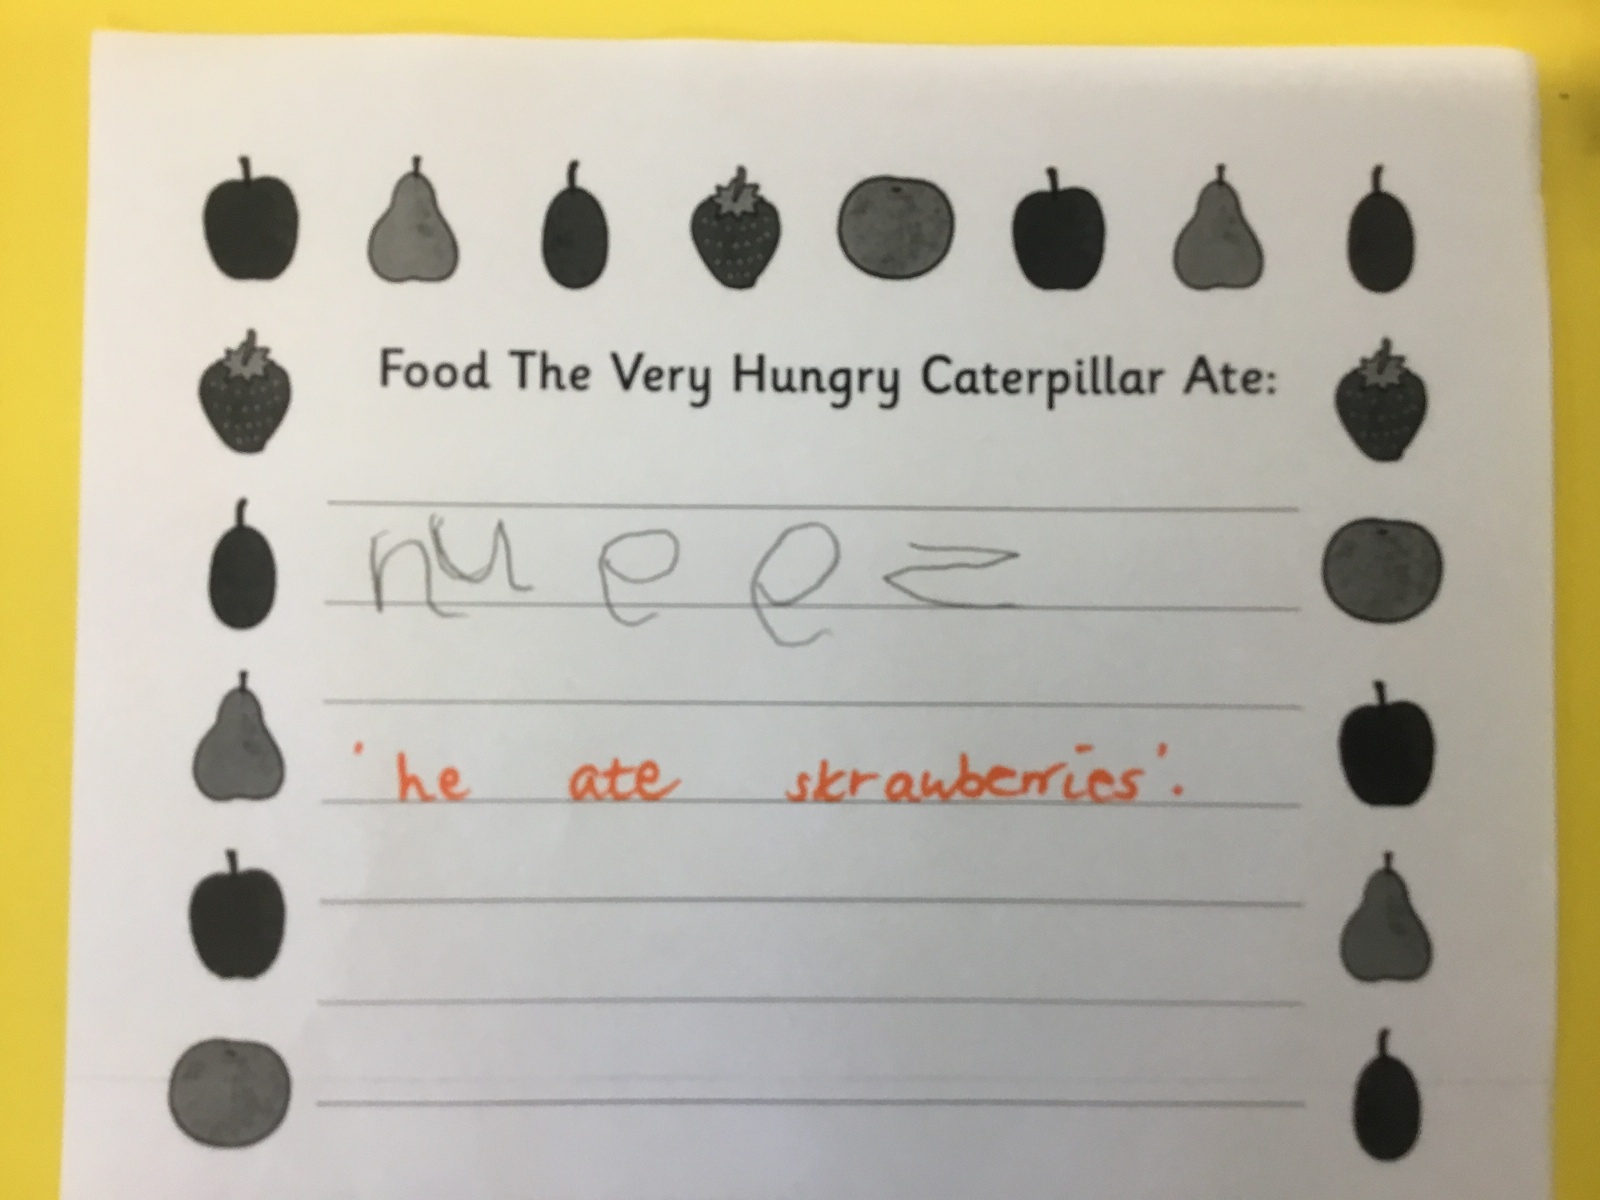 Food The Very Hungry Caterpillar Ate:
nu e e z
'he ate skrawberries'.